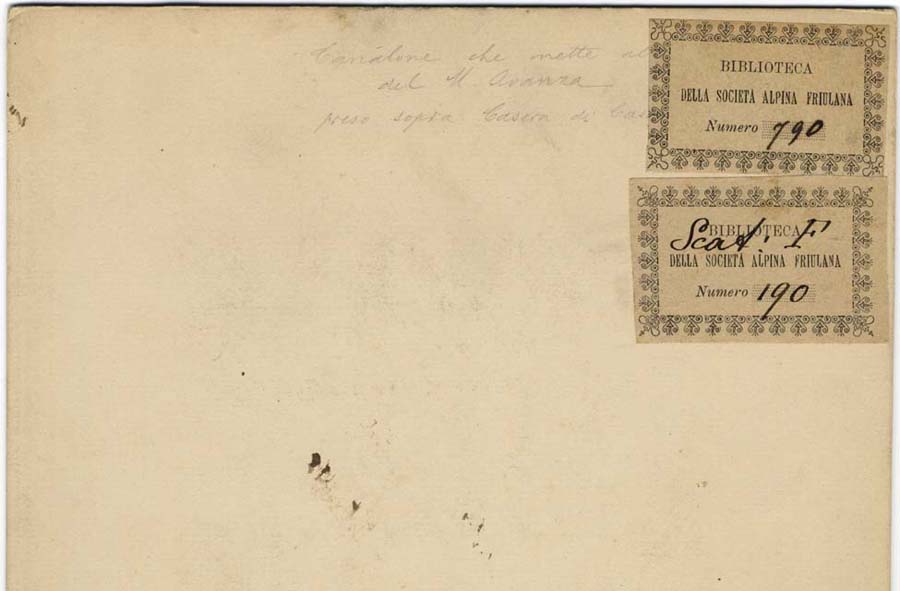 Canalone che mette al
del M. Avanza
preso sopra Casera di Cas
BIBLIOTECA
DELLA SOCIETÀ ALPINA FRIULANA
Numero 790
BIBLIOTECA
Scat. F
DELLA SOCIETÀ ALPINA FRIULANA
Numero 190